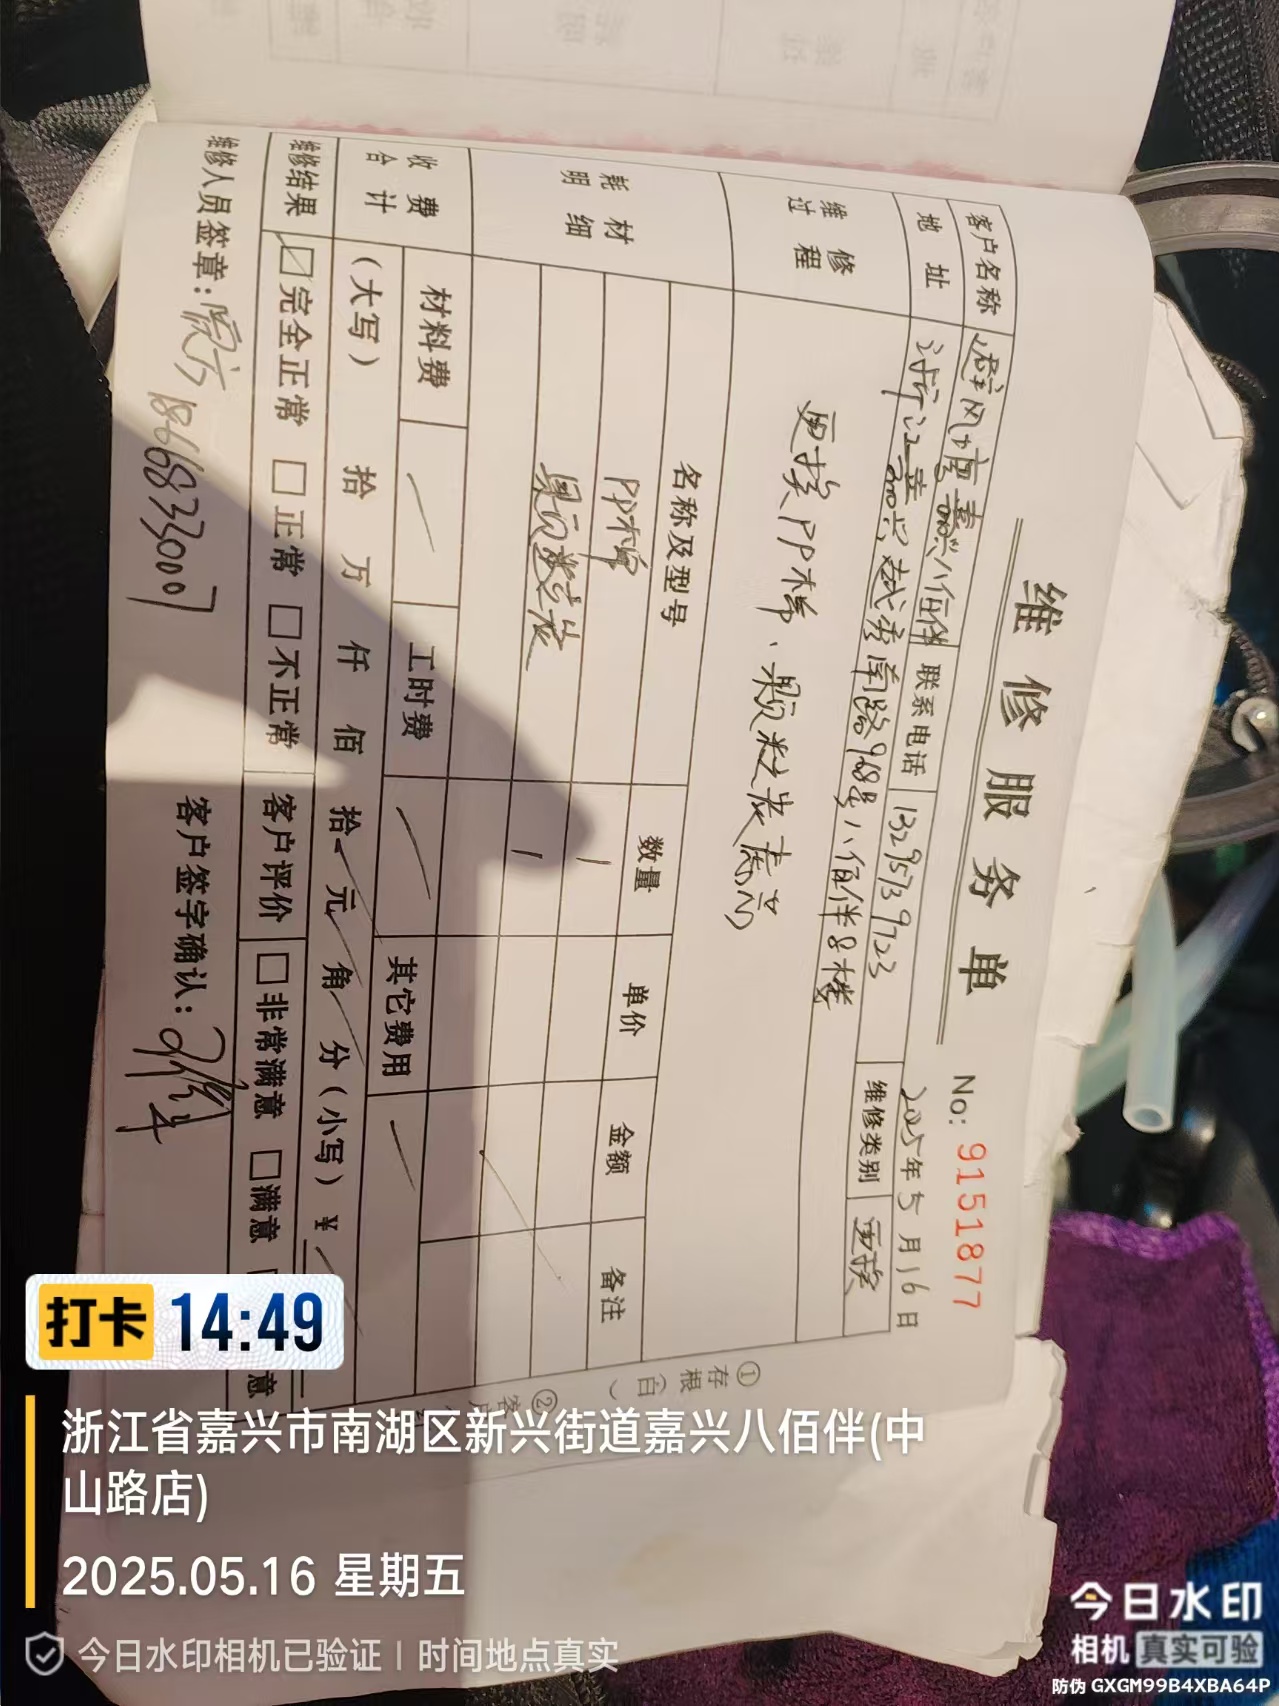 维修服务单
No: 9151877
2025年5月16日
客户名称 避风塘嘉兴八佰伴 联系电话 13295739723 维修类别 更换
地址 浙江嘉兴越秀南路988号八佰伴8楼
维修过程 更换PP棉、颗粒炭滤芯
耗材明细 名称及型号 数量 单价 金额 备注
PP棉 1
颗粒炭 1
收费合计 材料费 / 工时费 / 其它费用 /
(大写) 拾 万 仟 佰 拾 元 角 分 (小写) ¥
维修结果 ☑完全正常 □正常 □不正常 客户评价 □非常满意 □满意
意
维修人员签章: 18668330007
客户签字确认:
①存根(白)
②客
打卡 14:49
浙江省嘉兴市南湖区新兴街道嘉兴八佰伴(中
山路店)
2025.05.16 星期五
今日水印相机已验证 | 时间地点真实
今日水印
相机 真实可验
防伪 GXGM99B4XBA64P